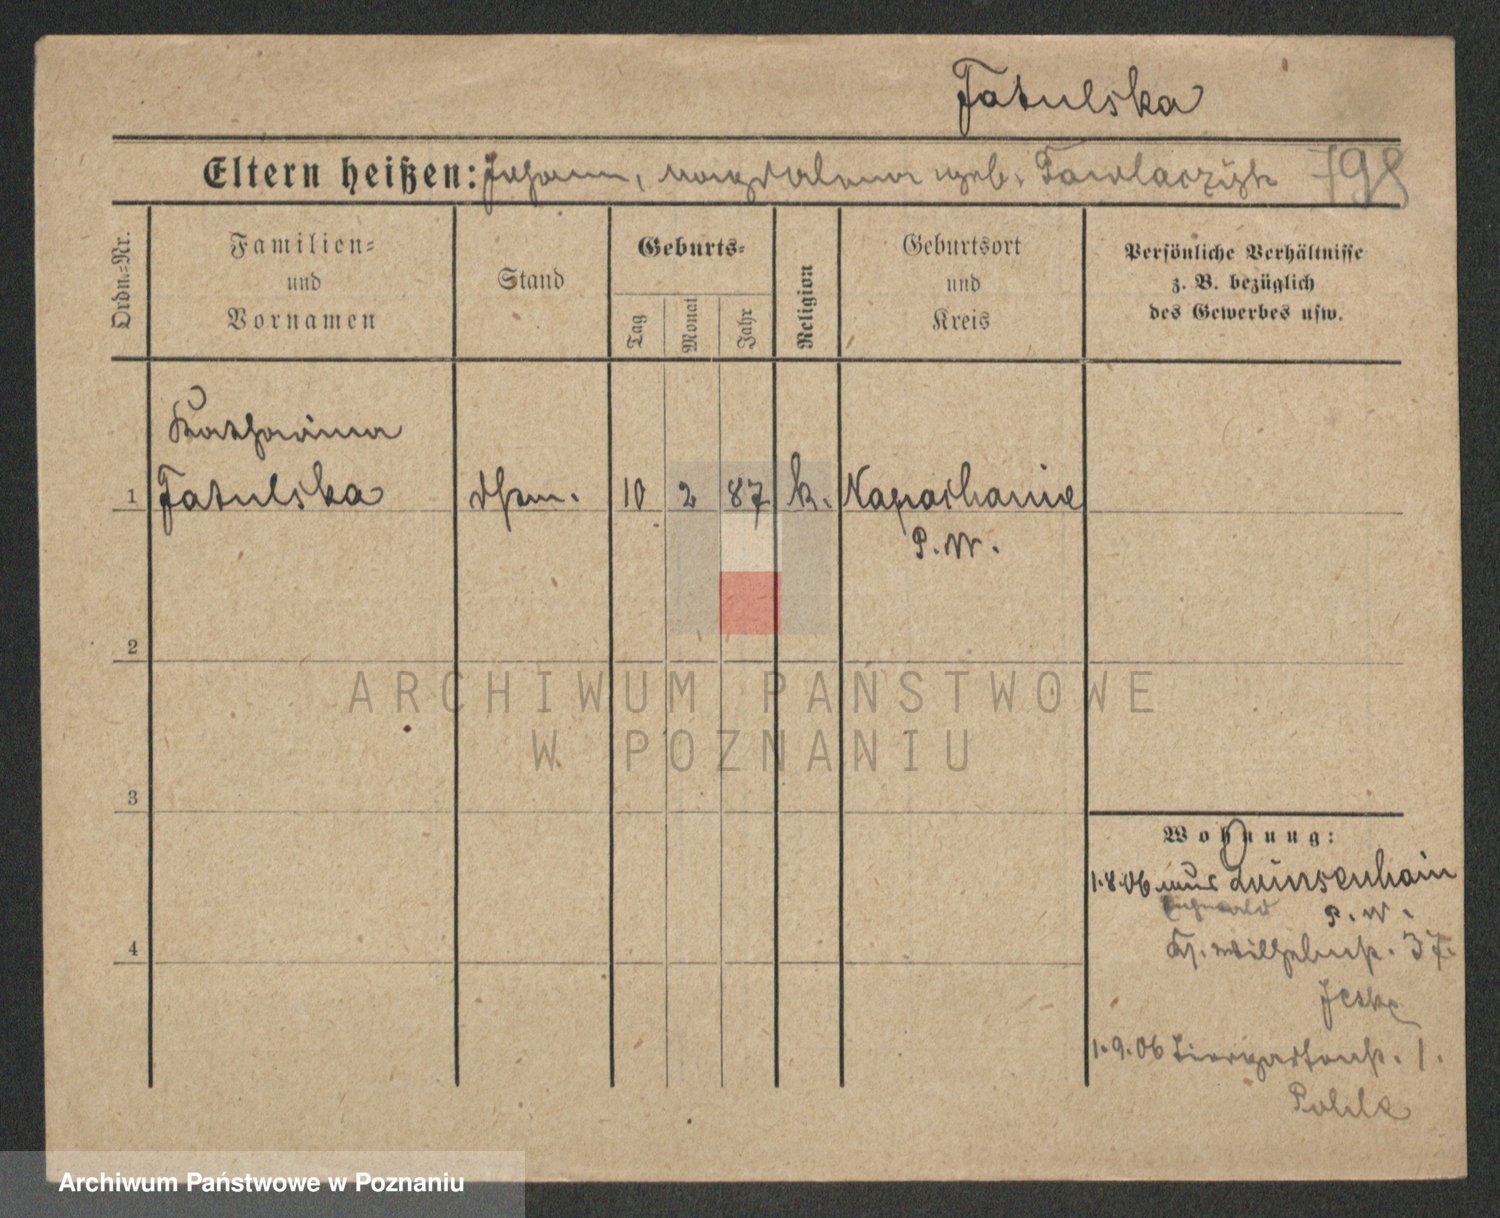 Fatulska
Eltern heißen: Johann, Magdalena geb. 798
Ordn.-Nr.
Familien-
und
Vornamen
Stand
Geburts-
Tag
Monat
Jahr
Religion
Geburtsort
und
Kreis
Persönliche Verhältnisse
z. B. bezüglich
des Gewerbes usw.
Katharina
1 Fatulska 10 2 87 k. Napachanie
P. W.
2
3
4
Wohnung:
1.8.06 aus Luisenhain
P. W.
Ks. Wilhelmstr. 37.
Jeske
1.9.06 Tiergartenstr. 1.
ARCHIWUM PAŃSTWOWE
W POZNANIU
Archiwum Państwowe w Poznaniu